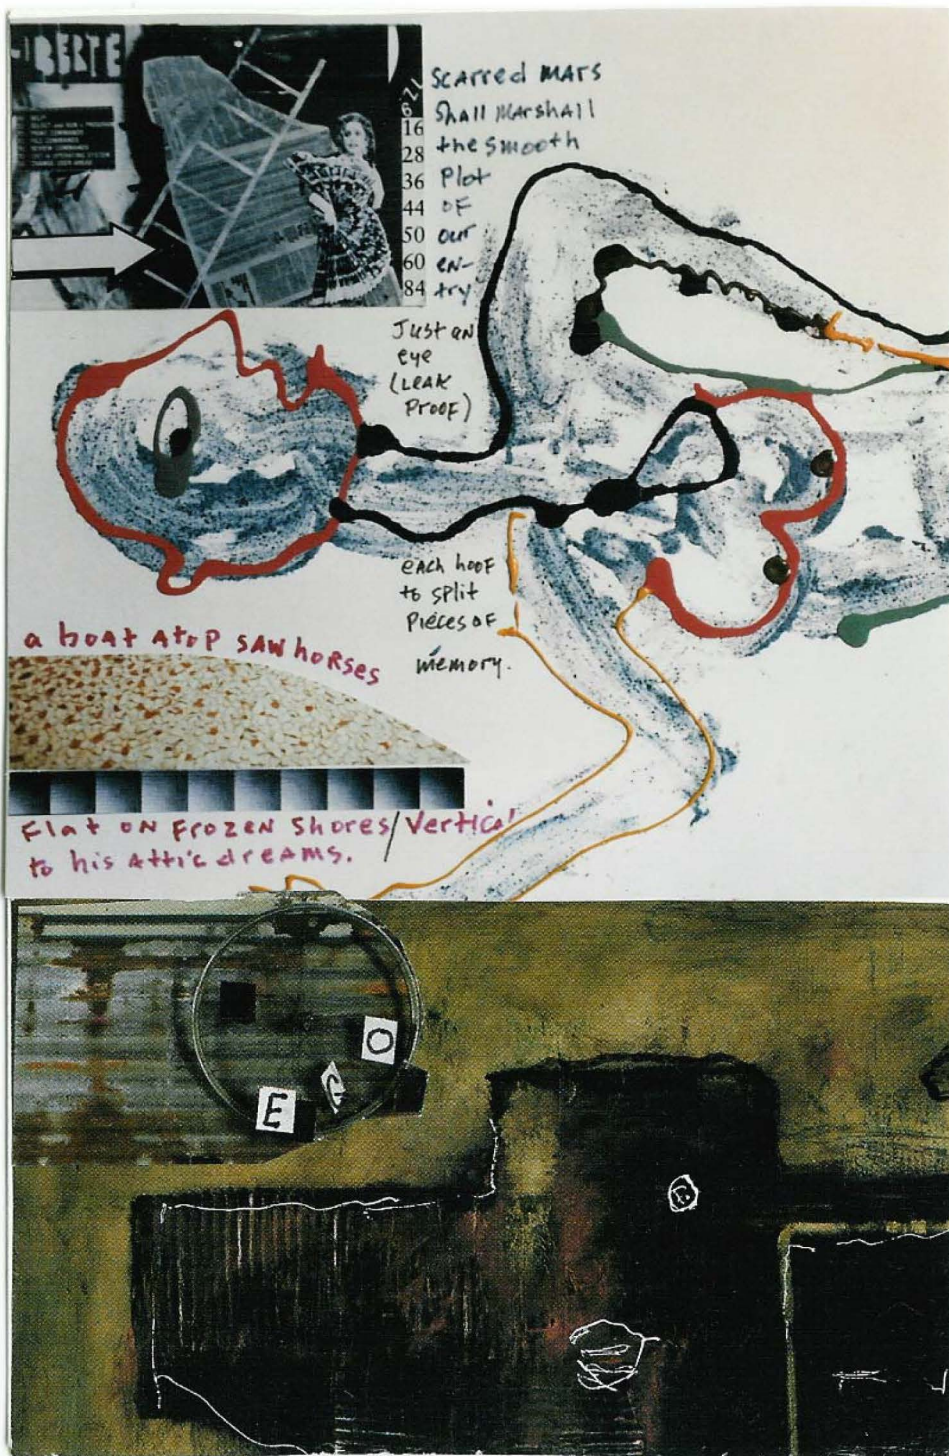 IBERTE
HELP
16
28
36
44
50
60
84
Scarred MARS
Shall MARShAll
the smooth
Plot
OF
our
en-
try
Just an
eye
(LEAK
PROOF)
each hoof
to split
Pieces of
memory.
a boat Atop SAW hoRses
Flat ON FROZEN Shores/Vertical
to his Attic dreams.
O
C
E